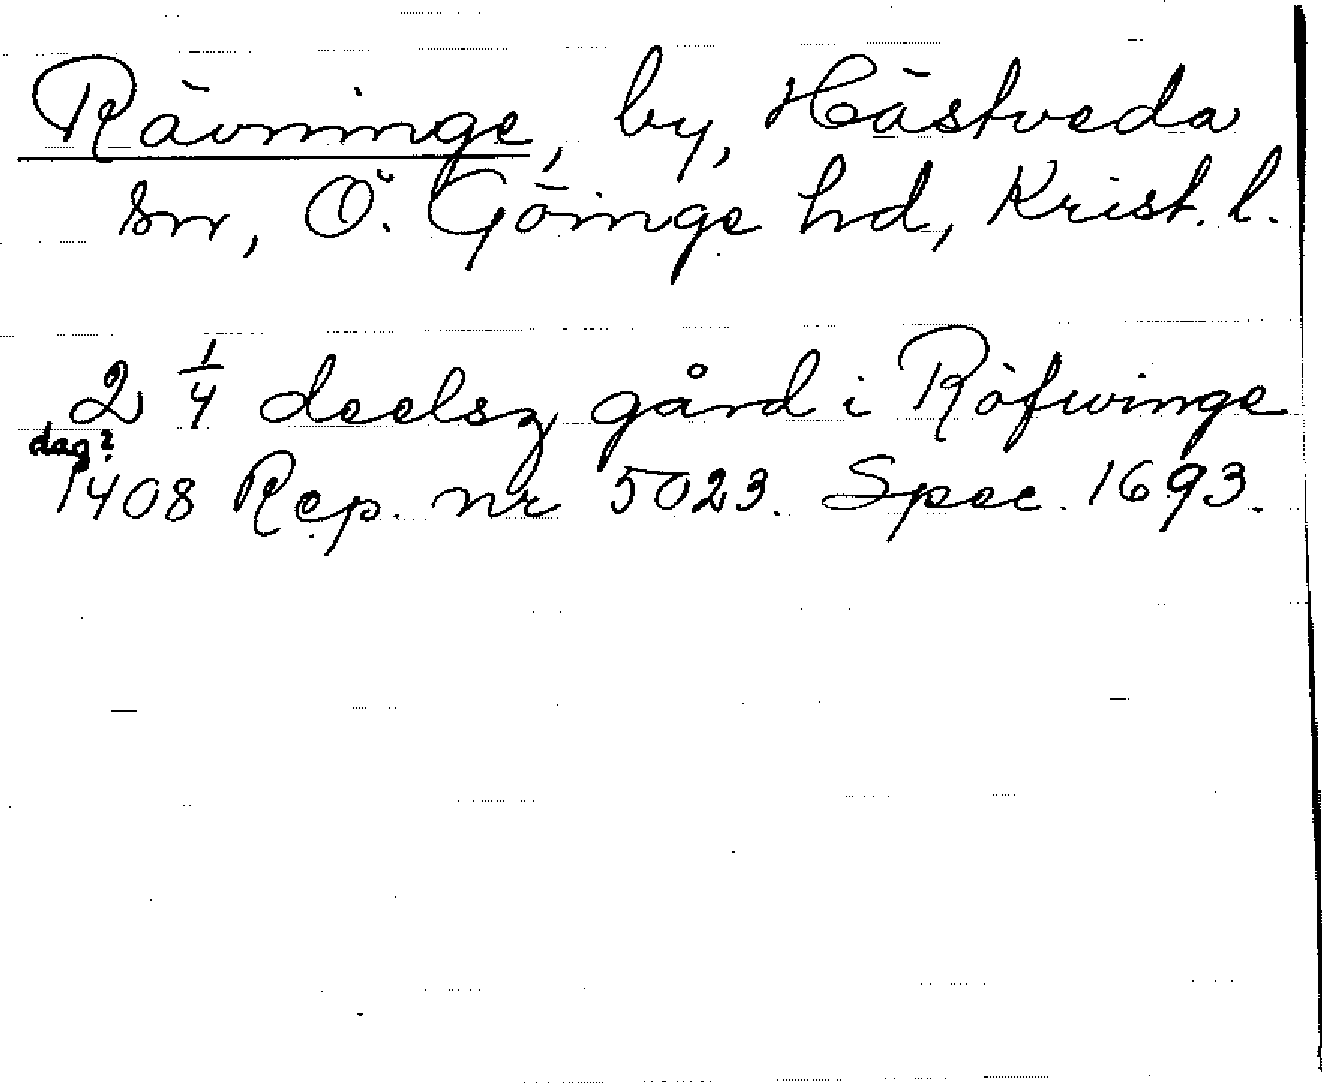 Rävninge, by, Hästveda
sn, Ö. Göinge hd, Krist. l.
2 1/4 deelsz gård i Röfwinge
dag?
1408 Rep. nr 5023. Spec. 1693.